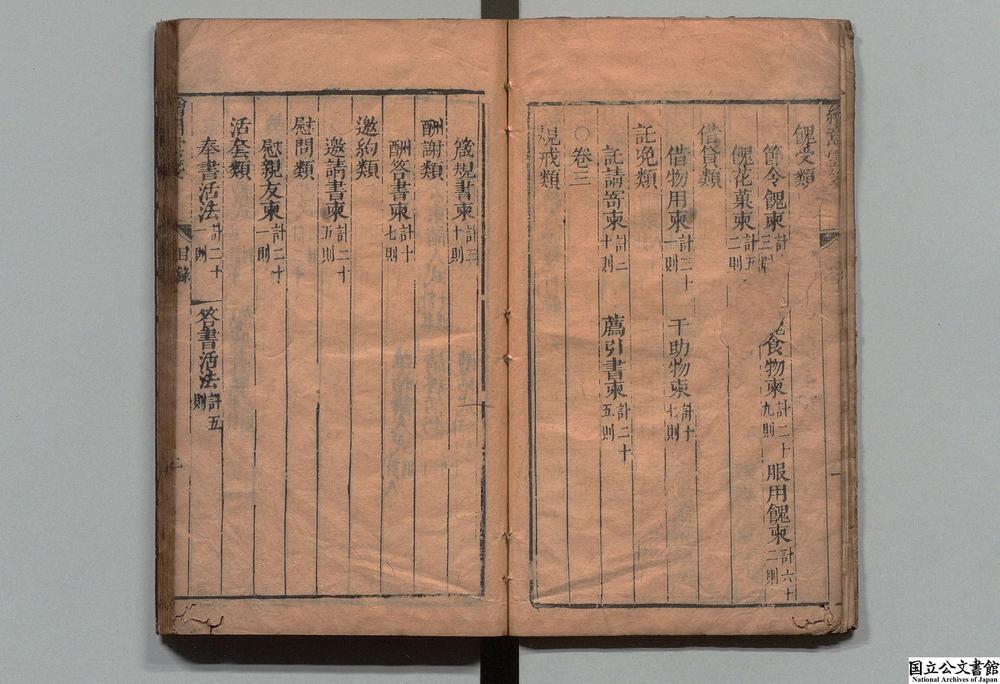 餽受類
節令餽柬計 三則 食物柬計二十九則 服用餽柬計六十二則
餽花菓柬計五二則
借貸類
借物用柬計三十一則 干助物柬計十七則
託免類
託請寄柬計二十則 薦引書柬計二十五則
○卷三
規戒類
箴規書柬計五十則
酬謝類
酬答書柬計十七則
邀約類
邀請書柬計二十五則
慰問類
慰親友柬計二十一則
活套類
奉書活法計二十一則 答書活法計五則
目錄
国立公文書館
National Archives of Japan